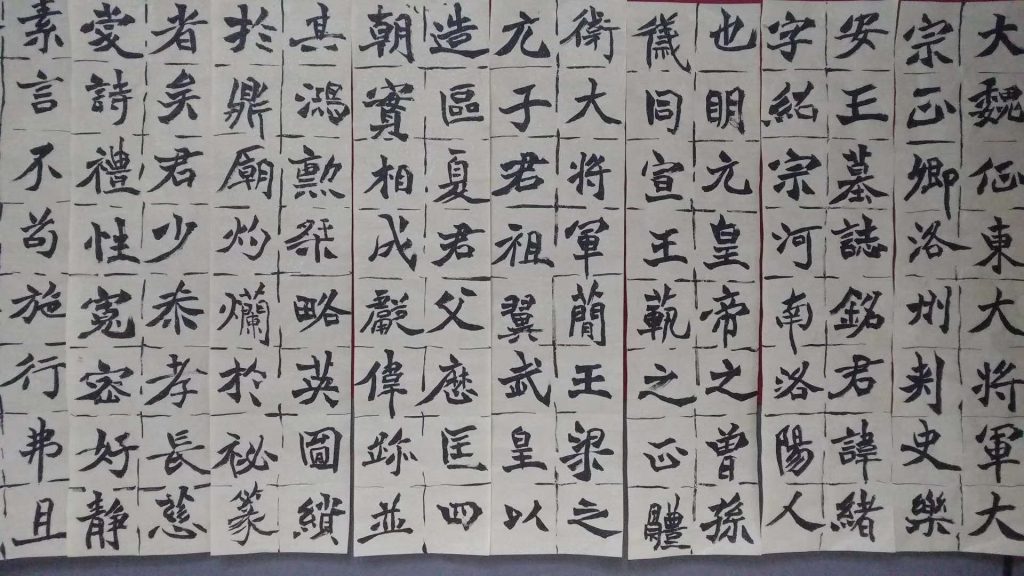 大魏征東大將軍大
宗正卿洛州刾史樂
安王墓誌銘君諱緒
字紹宗河南洛陽人
也明元皇帝之曾孫
儀同宣王範之正體
衛大將軍簡王梁之
元子君祖翼武皇以
造區夏君父歷匡四
朝實相成偉跡並
其鴻勲桀略英圖繢
於鼎廟灼爛於祕篆
者矣君少恭孝長慈
蒙詩禮性寬密好静
素言不苟施行弗且